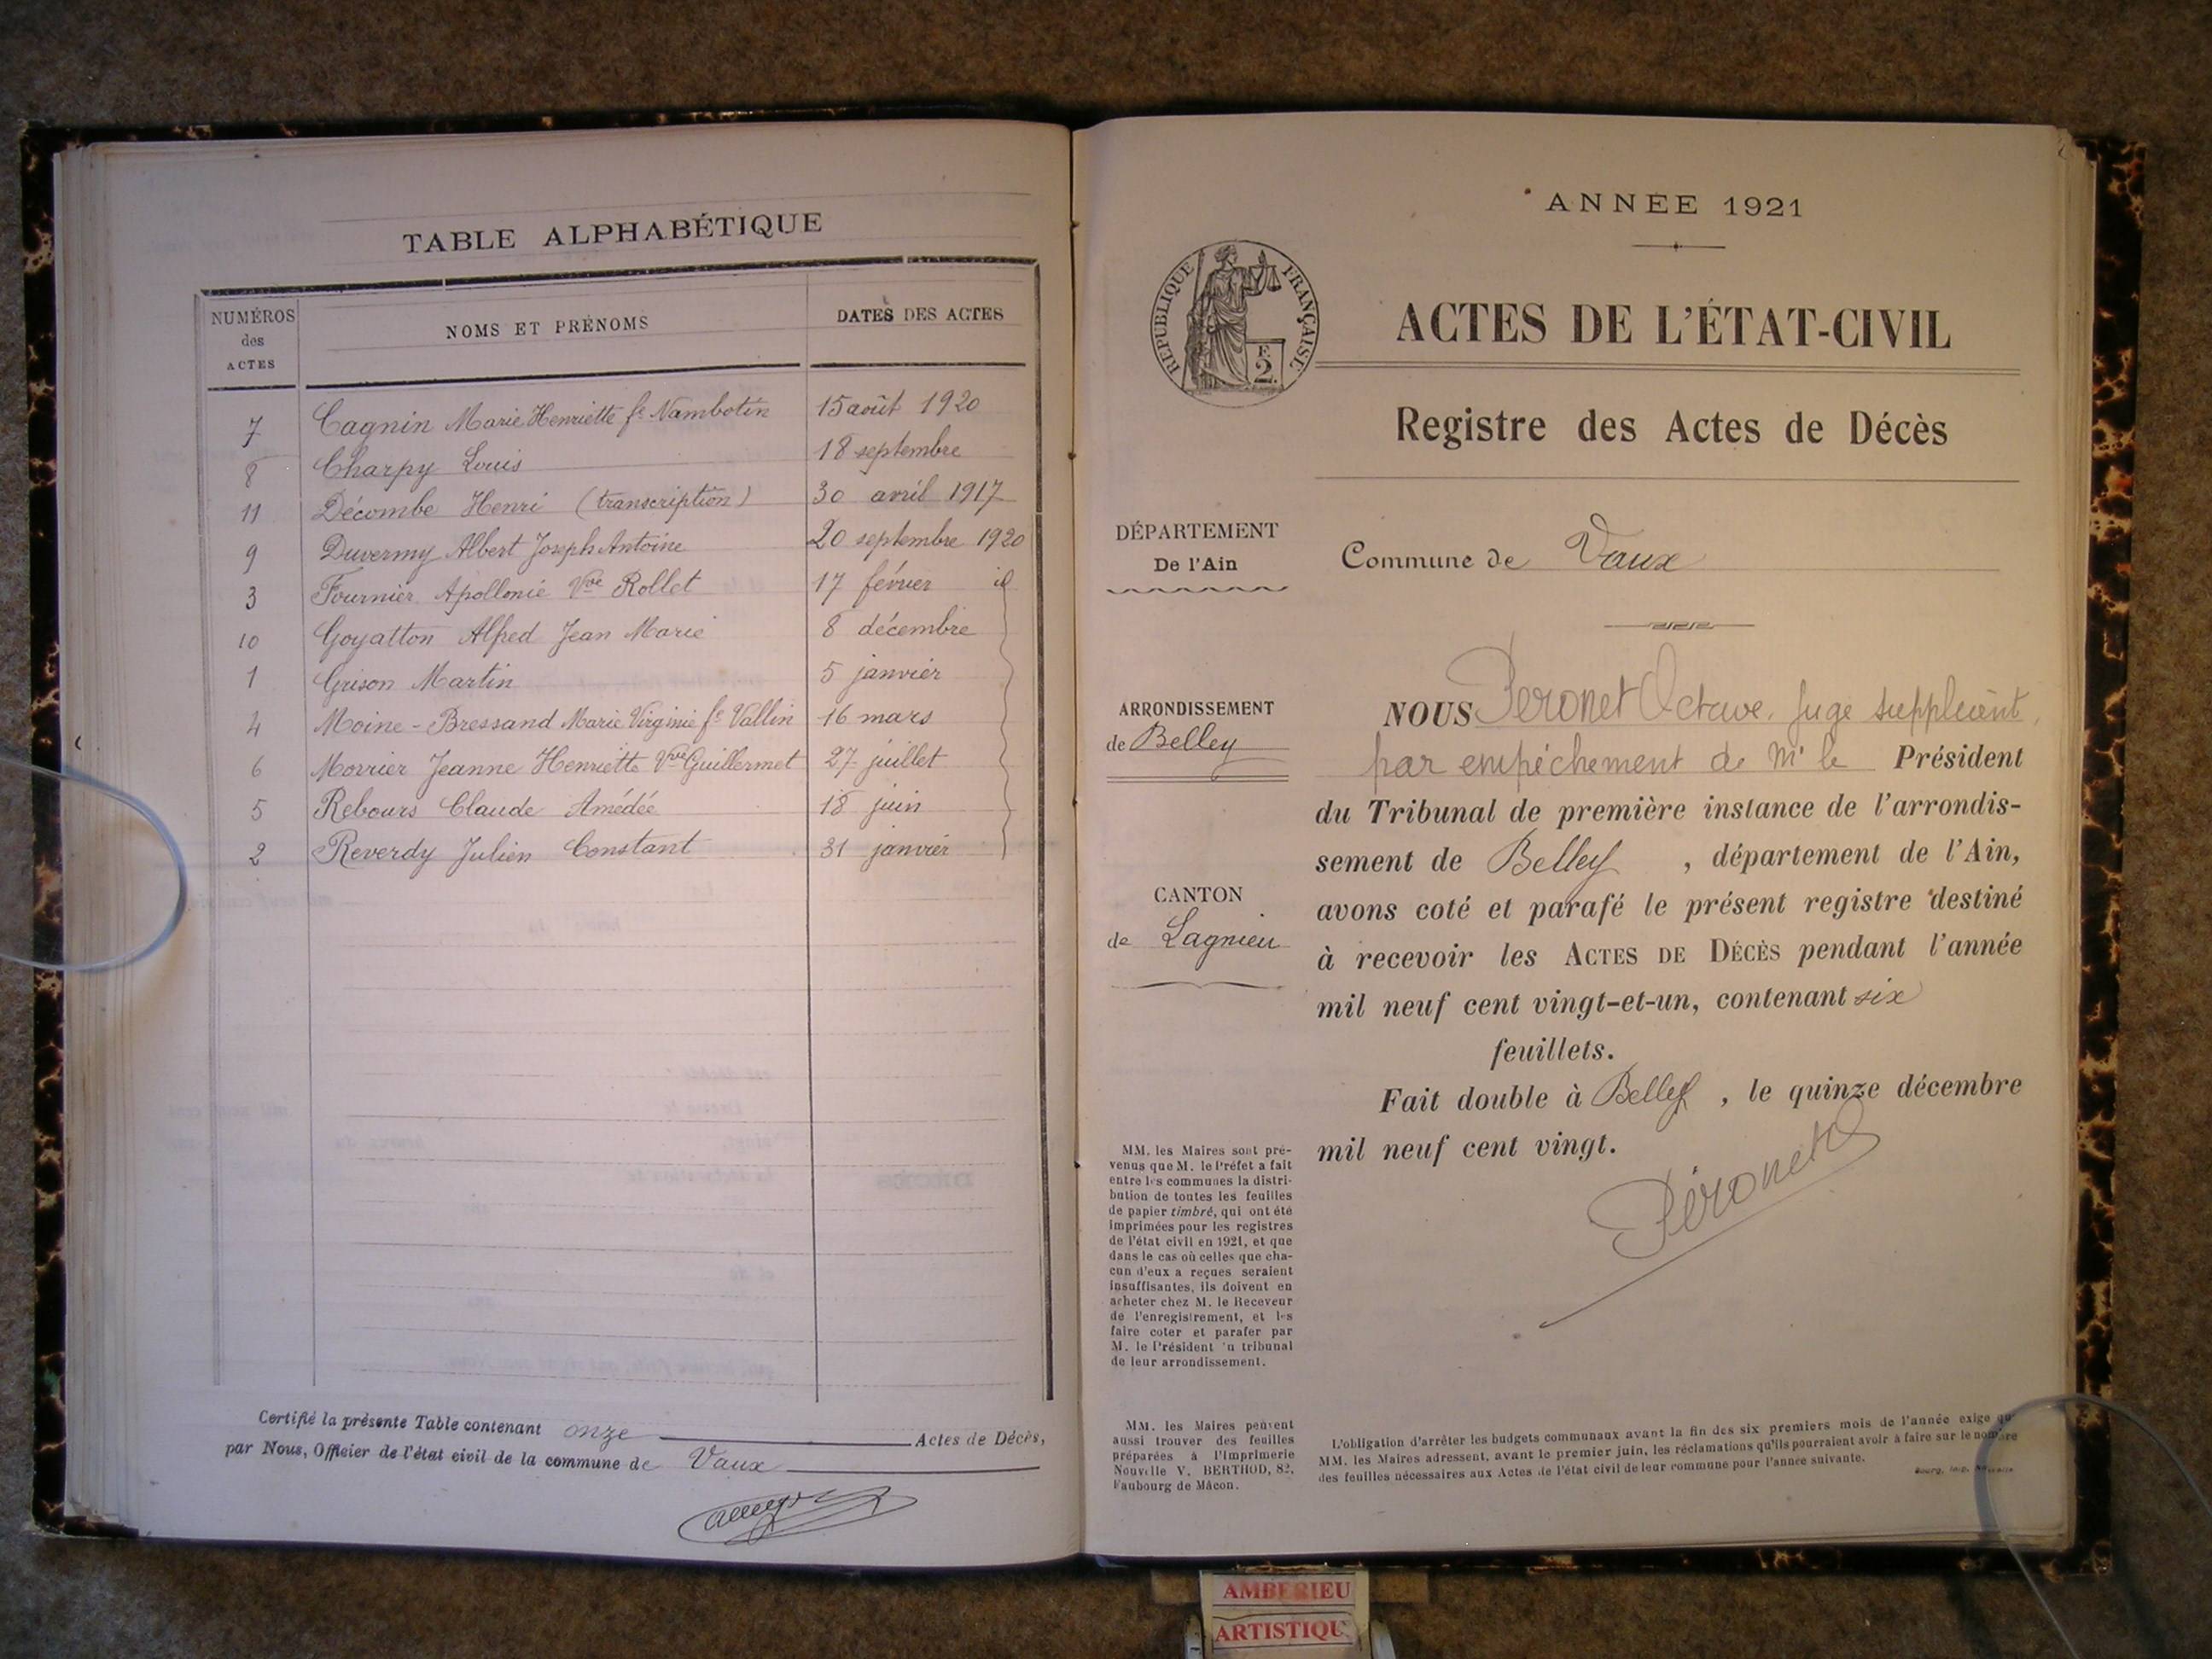 TABLE ALPHABÉTIQUE
NUMÉROS des ACTES
NOMS ET PRÉNOMS
DATES DES ACTES
7 Cagnin Marie Henriette fe Nambotin 15 août 1920
8 Charpy Louis 18 septembre
11 Décombe Henri (transcription) 30 avril 1917
9 Duvermy Albert Joseph Antoine 20 septembre 1920
3 Fournier Apollonie Vve Rollet 17 février id
10 Goyatton Alfred Jean Marie 8 décembre
1 Grison Martin 5 janvier
4 Moine-Bressand Marie Virginie fe Vallin 16 mars
6 Morrier Jeanne Henriette Vve Guillermet 27 juillet
5 Rebours Claude Amédée 18 juin
2 Reverdy Julien Constant 31 janvier
Certifié la présente Table contenant onze Actes de Décès,
par Nous, Officier de l'état civil de la commune de Vaux
ANNÉE 1921
RÉPUBLIQUE FRANÇAISE
F. 2.
ACTES DE L'ÉTAT-CIVIL
Registre des Actes de Décès
DÉPARTEMENT
De l'Ain
Commune de Vaux
ARRONDISSEMENT
de Belley
CANTON
de Lagnieu
NOUS Peronet Octave, Juge suppléant,
par empêchement de Mr le Président
du Tribunal de première instance de l'arrondis-
sement de Belley, département de l'Ain,
avons coté et parafé le présent registre destiné
à recevoir les ACTES DE DÉCÈS pendant l'année
mil neuf cent vingt-et-un, contenant six
feuillets.
Fait double à Belley, le quinze décembre
mil neuf cent vingt.
Péronet
MM. les Maires sont pré-
venus que M. le Préfet a fait
entre les communes la distri-
bution de toutes les feuilles
de papier timbré, qui ont été
imprimées pour les registres
de l'état civil en 1921, et que
dans le cas où celles que cha-
cun d'eux a reçues seraient
insuffisantes, ils doivent en
acheter chez M. le Receveur
de l'enregistrement, et les
faire coter et parafer par
M. le Président u tribunal
de leur arrondissement.
MM. les Maires peuvent
aussi trouver des feuilles
préparées à l'Imprimerie
Nouvelle V. BERTHOD, 82,
Faubourg de Mâcon.
L'obligation d'arrêter les budgets communaux avant la fin des six premiers mois de l'année exige que
MM. les Maires adressent, avant le premier juin, les réclamations qu'ils pourraient avoir à faire sur le nombre
des feuilles nécessaires aux Actes de l'état civil de leur commune pour l'année suivante.
Bourg, Imp. Nouvelle
AMBERIEU
ARTISTIQU